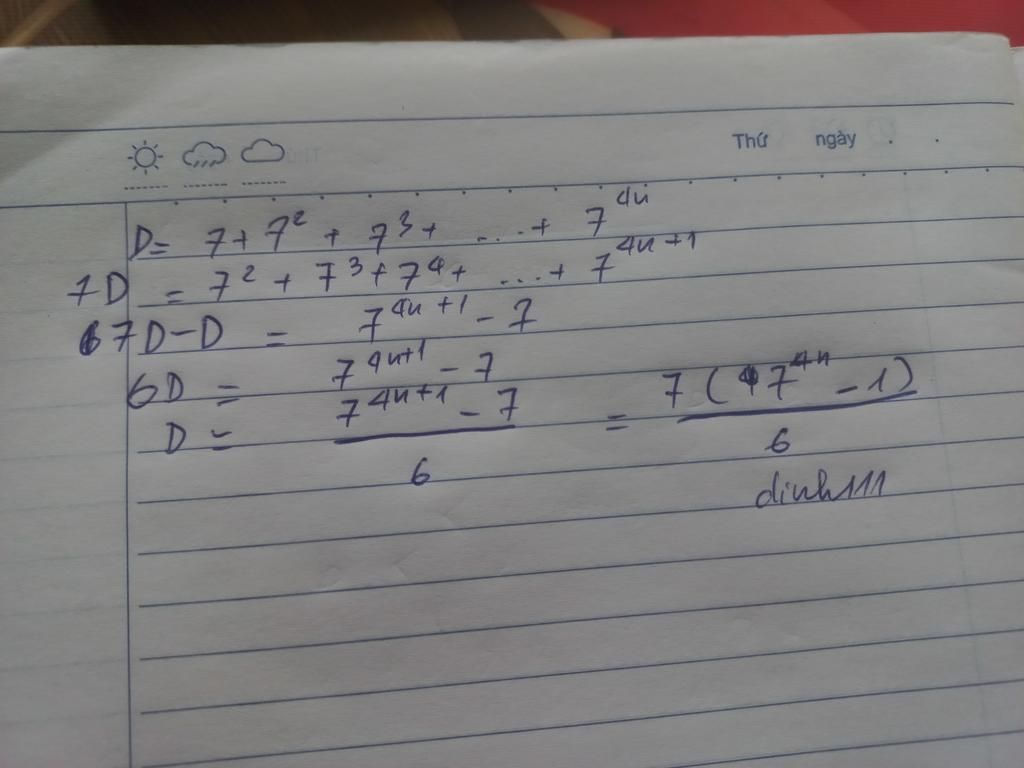 Thứ ngày
D= 7+ 7² + 7³ + ... + 7^4n
7D = 7² + 7³ + 7⁴ + ... + 7^4n+1
7D-D = 7^4n+1 - 7
6D = 7^4n+1 - 7
D = 7^4n+1 - 7 / 6 = 7 ( 7^4n - 1 ) / 6
dinh111